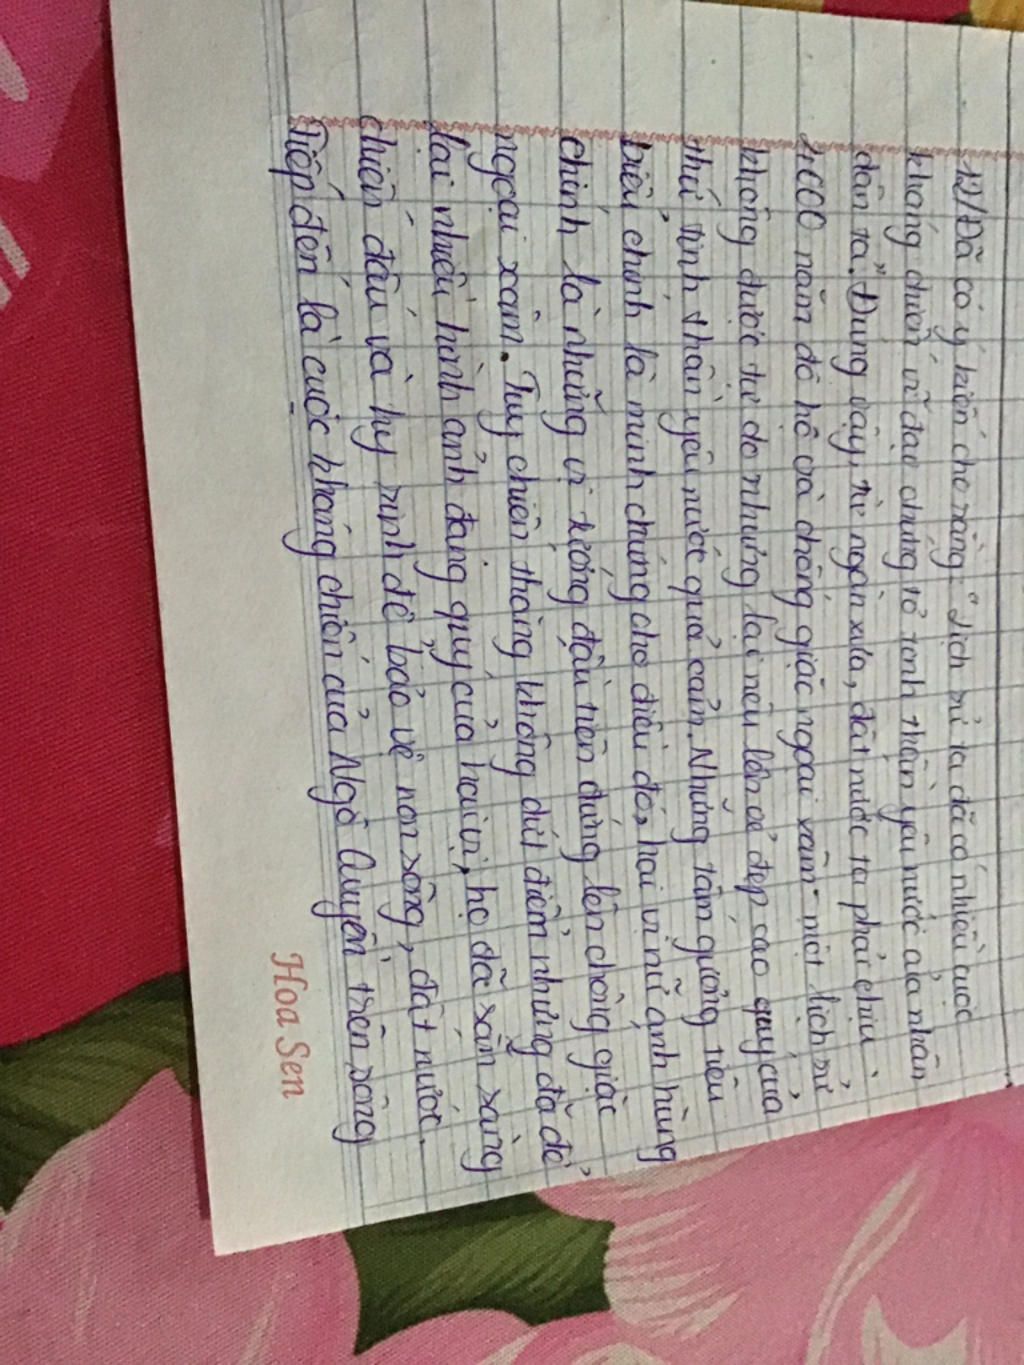 12/ Đã có ý kiến cho rằng: "Lịch sử ta đã có nhiều cuộc
kháng chiến vĩ đại chứng tỏ tinh thần yêu nước của nhân
dân ta". Đúng vậy, từ ngàn xưa, đất nước ta phải chịu
4000 năm đô hộ và chống giặc ngoại xâm - một lịch sử
không được tự do nhưng lại nêu lên vẻ đẹp cao quý của
thứ tinh thần yêu nước quả cảm. Những tấm gương tiêu
biểu chính là minh chứng cho điều đó, hai vị nữ anh hùng
chính là những vị tướng đầu tiên đứng lên chống giặc
ngoại xâm. Tuy chiến thắng không dứt điểm nhưng đã để
lại nhiều hình ảnh đáng quý của hai vị, họ đã sẵn sàng
chiến đấu và hy sinh để bảo vệ non sông, đất nước.
Tiếp đến là cuộc kháng chiến của Ngô Quyền trên sông
Hoa Sen